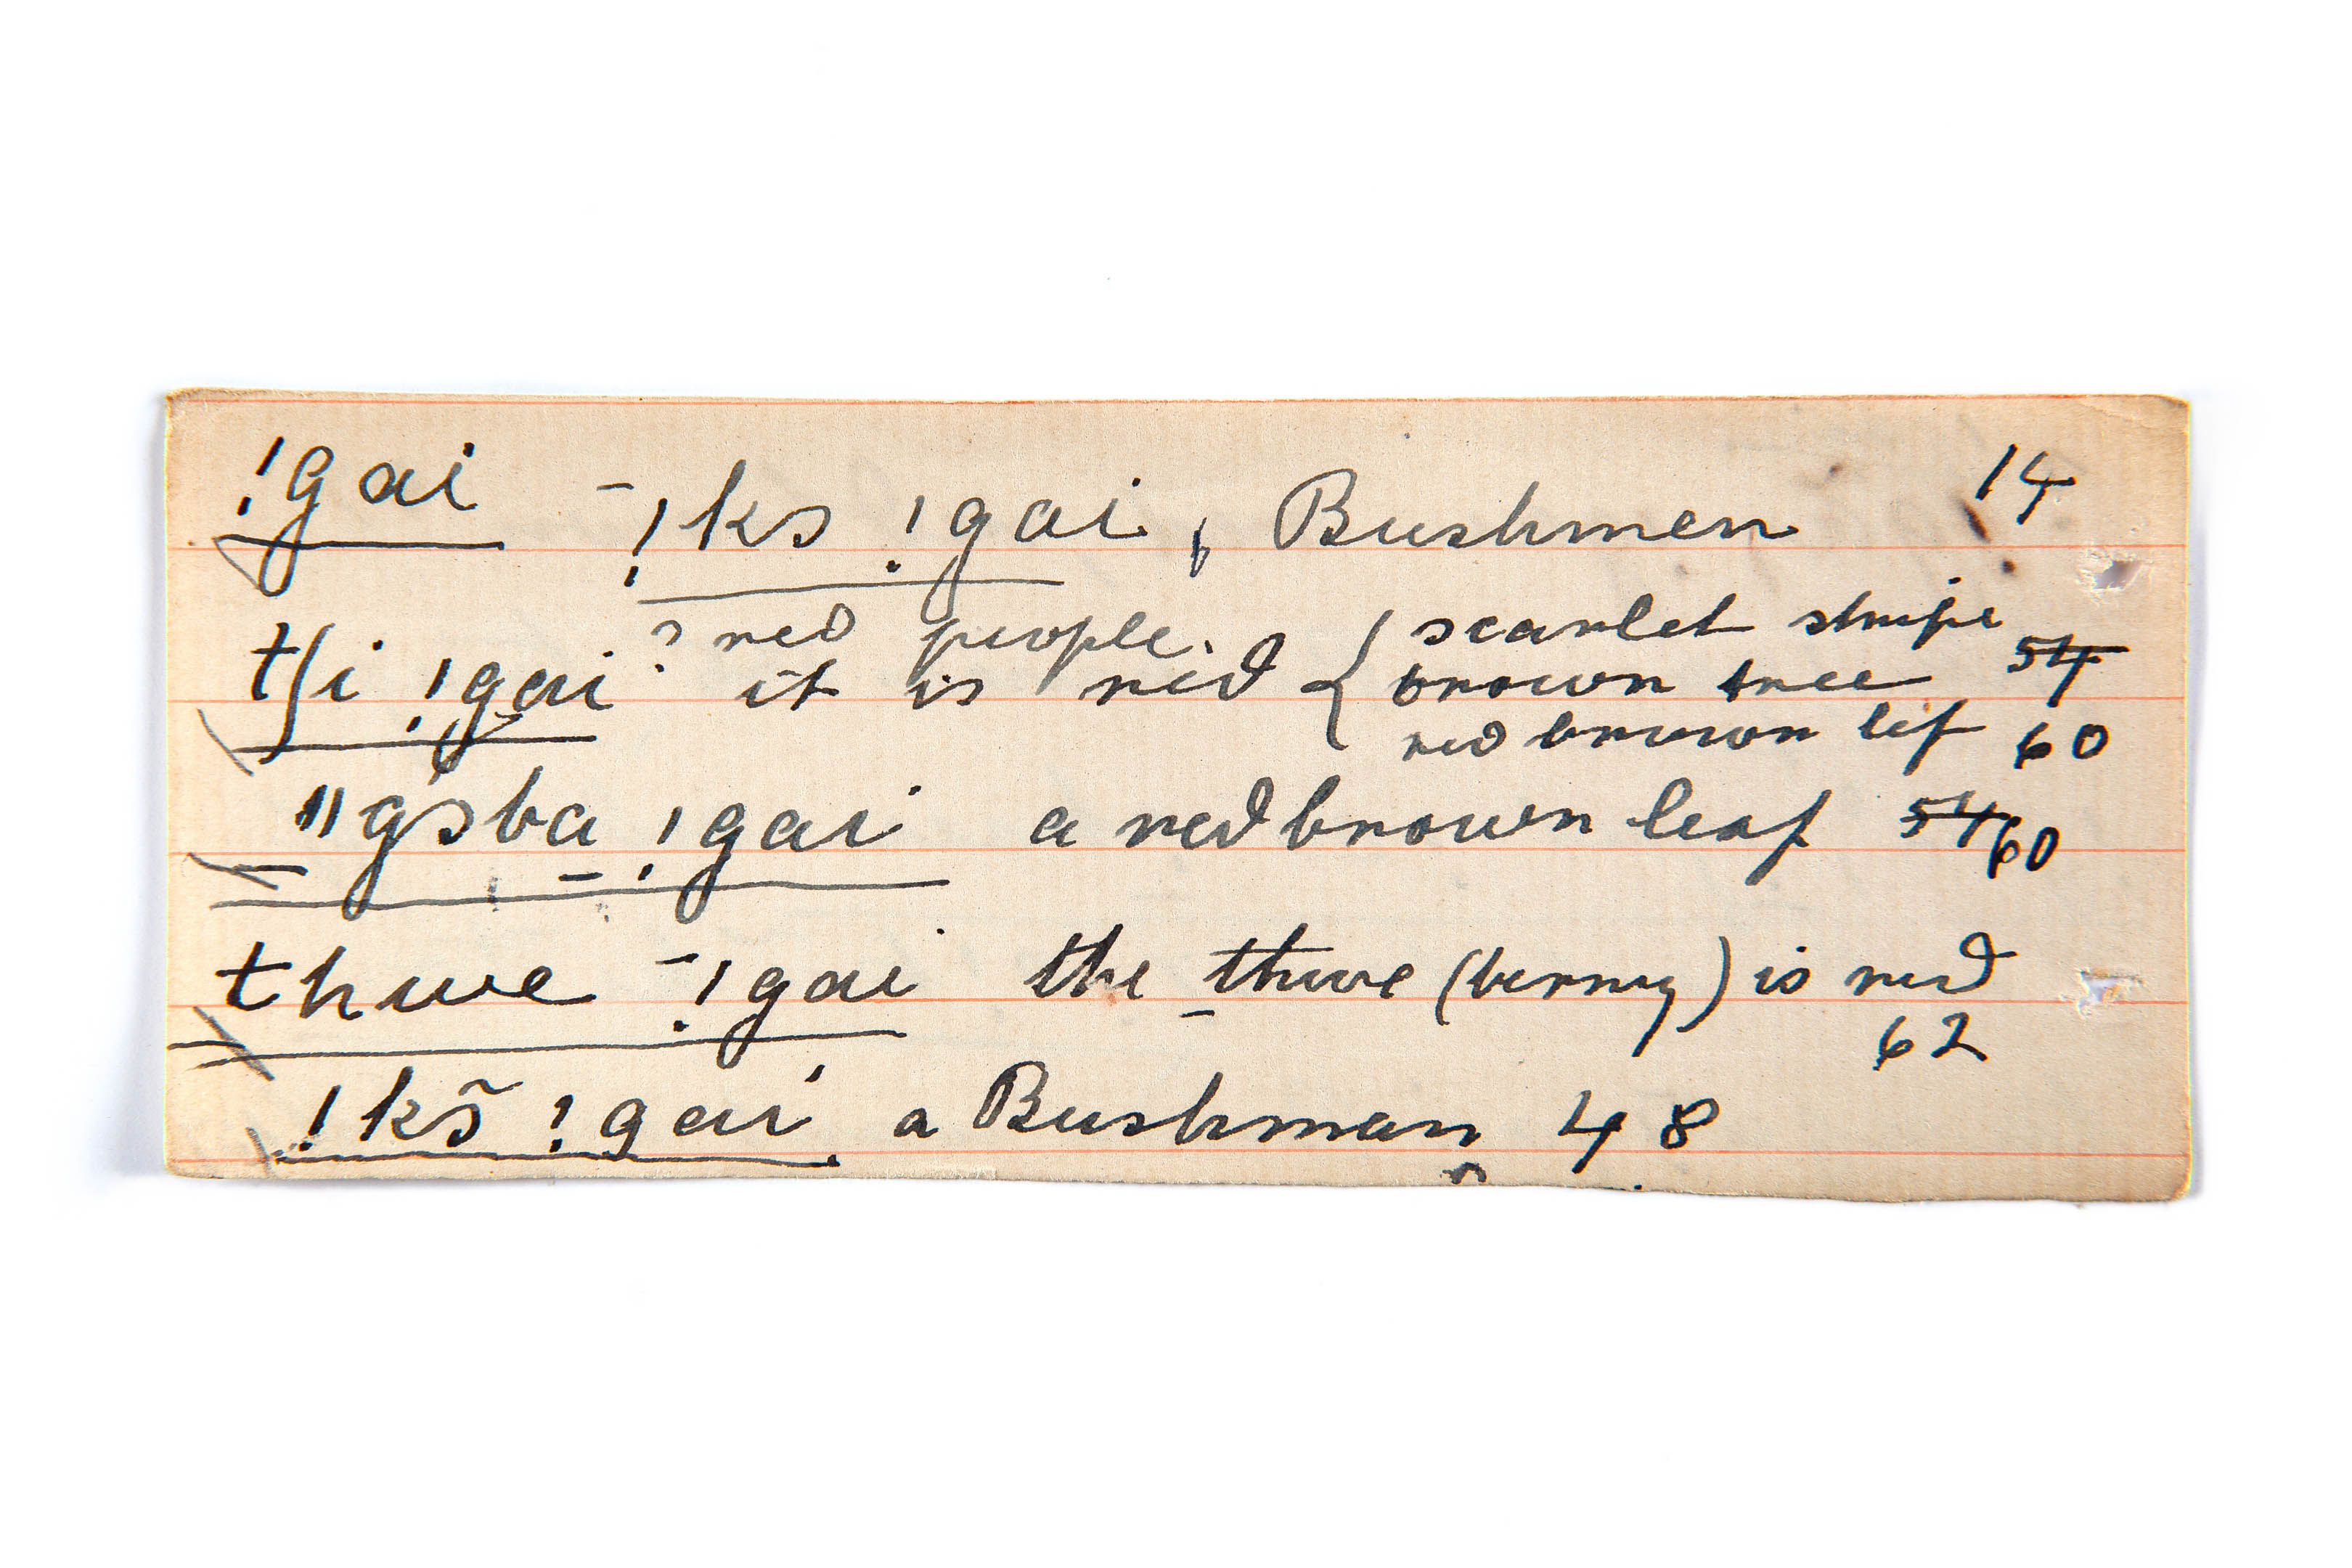 !gai ¯!kɔ !gai, Bushmen 14
? red people.
tʃi !gai it is red { scarlet stripe
brown tree 54
red brown lef 60
ǁgɔba !gai a red brown leaf 54 60
thwe ¯!gai the thwe (berry) is red
62
!kɔ̃ !gai a Bushman 48